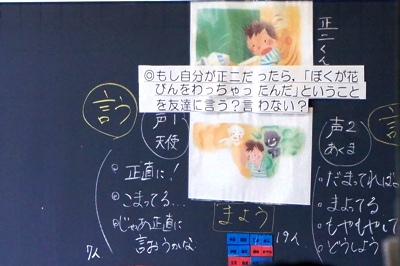 正二くん
◎もし自分が正二だったら,「ぼくが花
びんをわっちゃったんだ」ということ
を友達に言う?言わない?
言う
声1
天使
声2
あくま
・正直に!
・こまってる…
・じゃあ正直に
言おうかな
7人
まよう
19人
・だまってれば
・まよってる
・もやもやして
・どうしよう